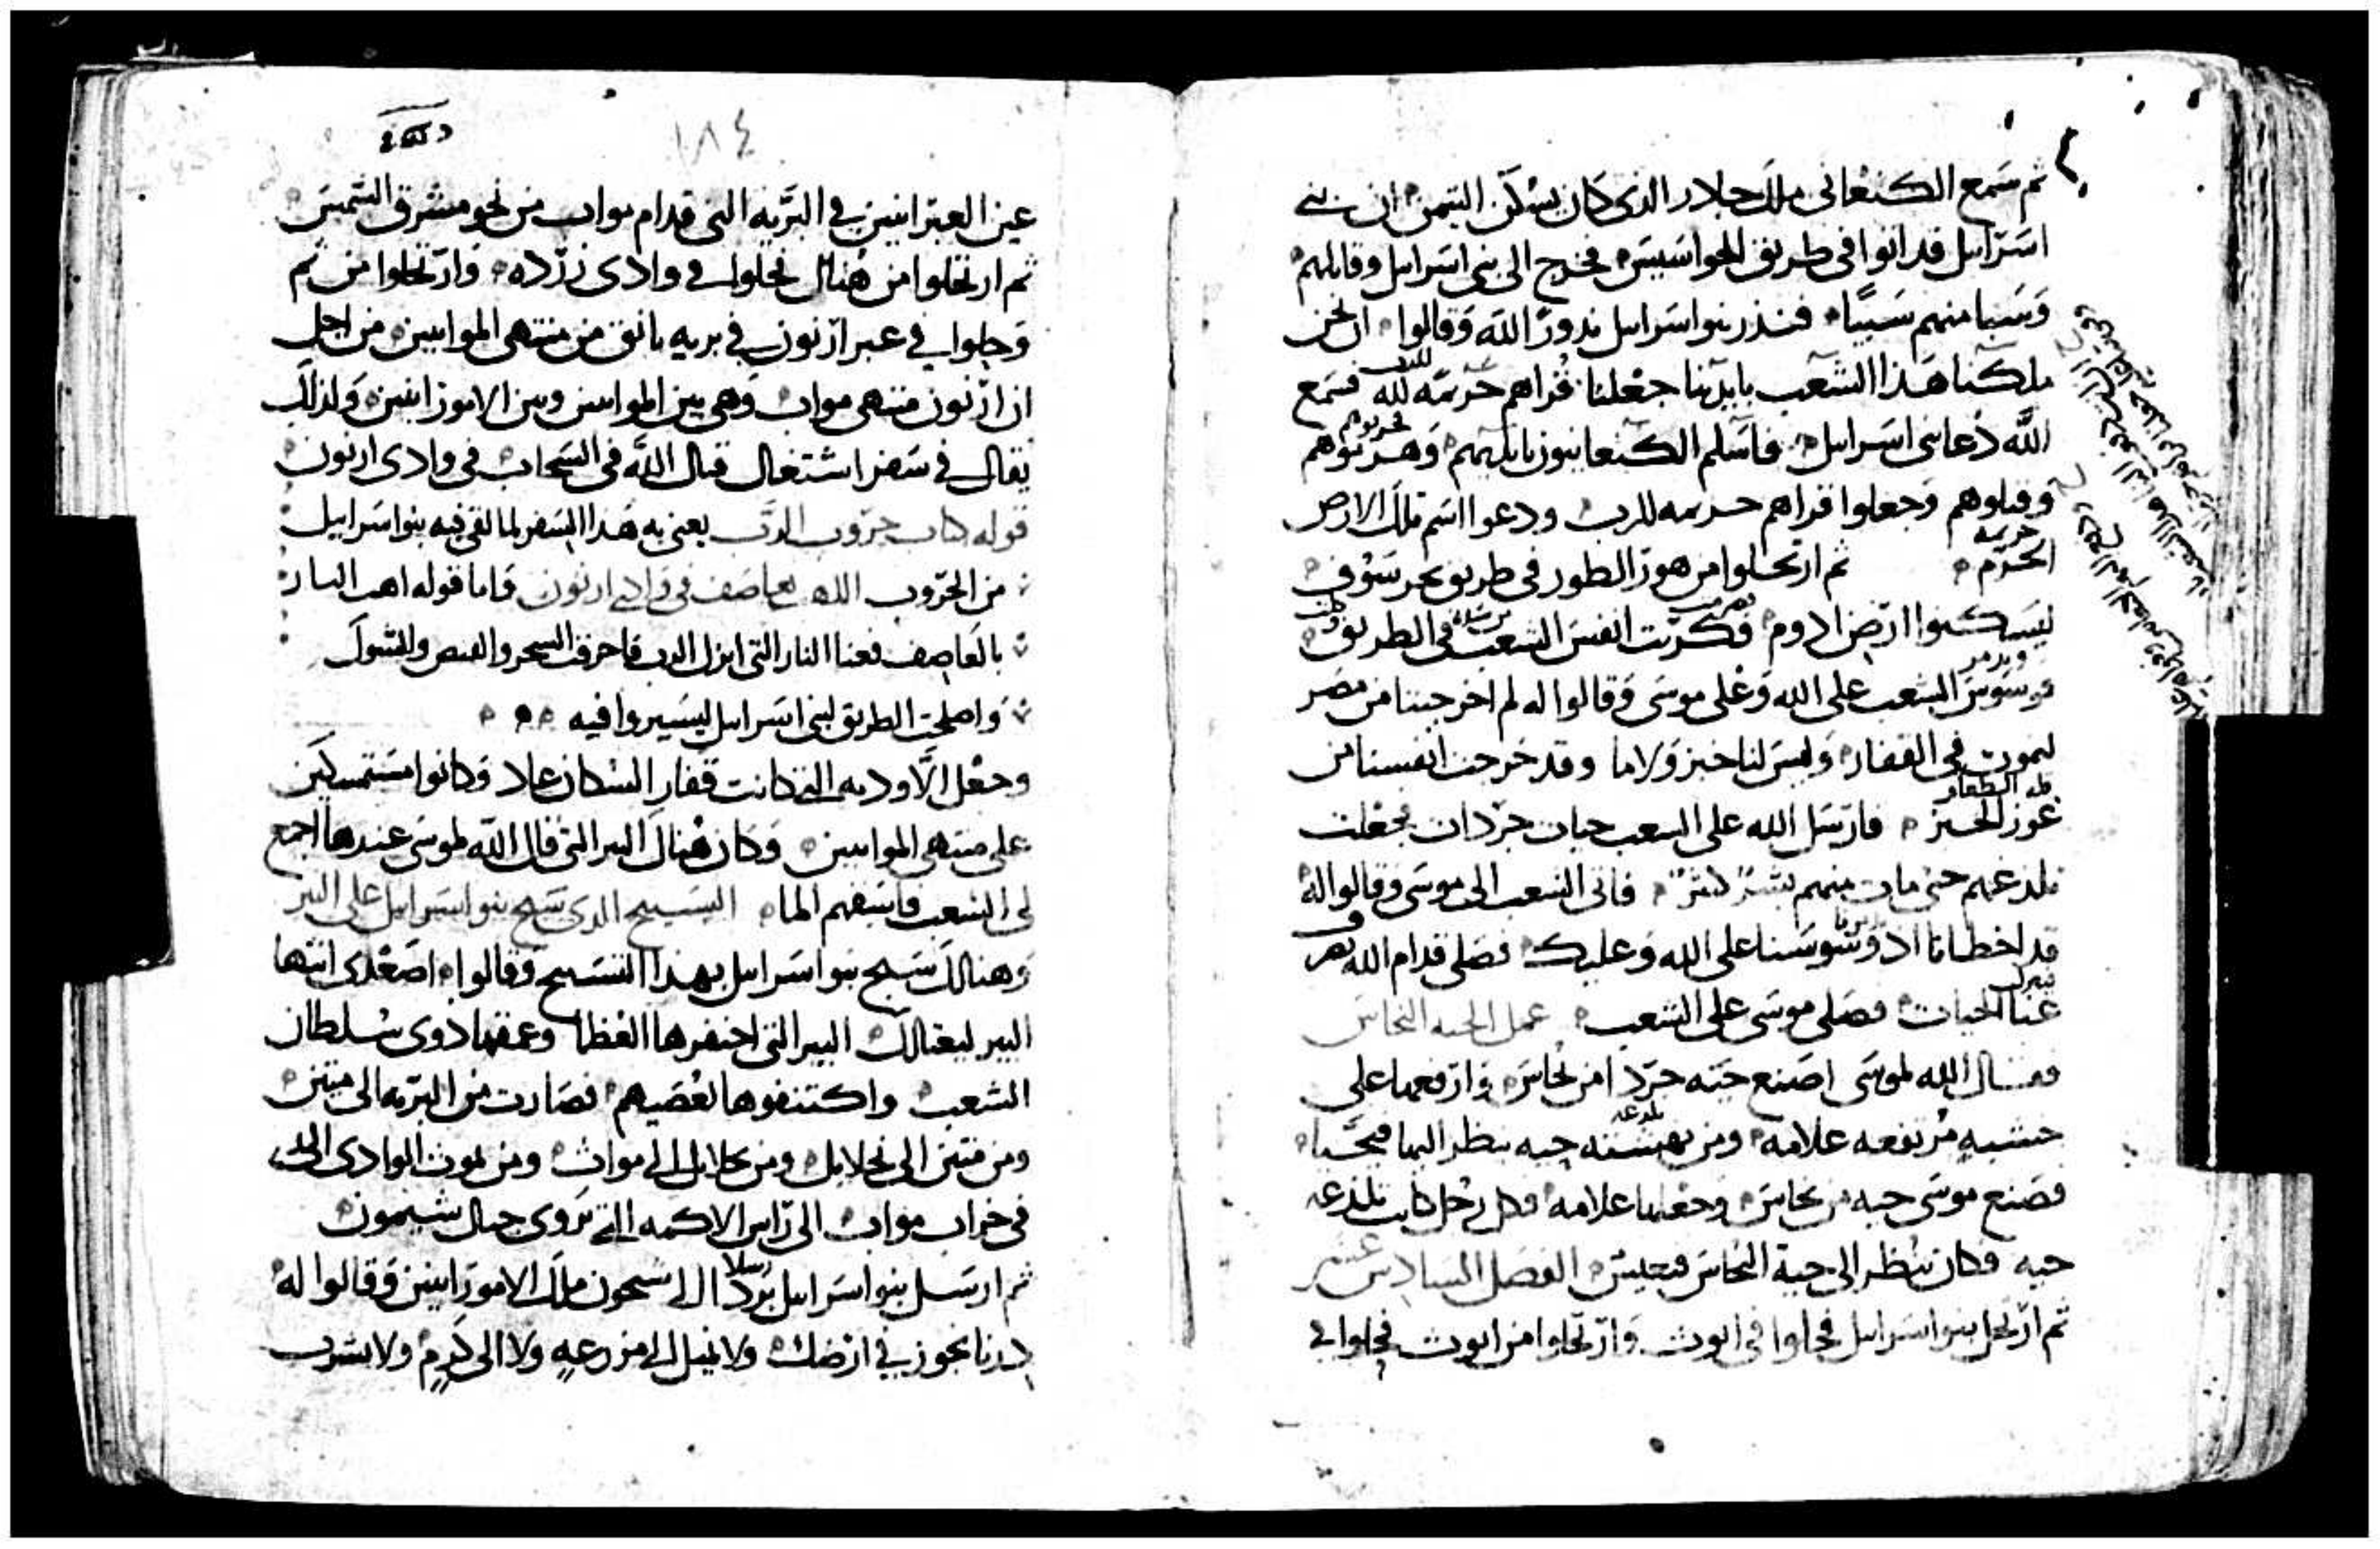 ثم سمع الكنعانى ملك جلادر الذى كان يسكن التيمن ان بنى
اسرائيل قد اتوا فى طريق الجواسيس فخرج الى بنى اسرايل وقاتلهم
وسبا منهم سبيًا فنذر بنو اسرايل ندورًا لله وقالوا ان نحن
ملكنا هذا الشعب بايدينا جعلنا قراهم حريمه لله فسمع
الله دعا بنى اسرايل فاسلم الكنعانيون بايديهم
وقتلوهم وجعلوا قراهم حريمه للرب ودعوا اسم تلك الارض
الحرم ثم ارتحلوا من هور الطور فى طريق بحر سوف
ليسكنوا ارض ادوم فكربت انفس الشعب فى الطريق
ووسوس الشعب على الله وعلى موسى وقالوا له لم اخرجتنا من مصر
لنموت فى القفار وليس لنا خبز ولا ما وقد خرجت انفسنا من
عوز الخبز فارسل الله على الشعب حيات جردان فجعلت
تلدغهم حتى مات منهم بشر كثير فاتى الشعب الى موسى وقالوا له
قد اخطانا اذ وسوسنا على الله وعليك فصلى قدام الله
عنا الحيات فصلى موسى على الشعب عمل الحيه النحاس
فقال الله لموسى اصنع حيه جردا من نحاس وارفعها على
خشبه مرتفعه علامه ومن نهشته حيه ينظر اليها فيحيا
فصنع موسى حيه من نحاس وجعلها علامه وكل رجل كانت تلدغه
حيه فكان ينظر الى حية النحاس فيعيش الفصل السادس عشر
ثم ارتحل بنو اسرايل فحلوا فى ابوث وارتحلوا من ابوث فحلوا فى
١٨٤
عين العبرانيين فى البريه التى قدام مواب من نحو مشرق الشمس
ثم ارتحلوا من هناك فحلوا فى وادى زرده وارتحلوا من ثم
وحلوا فى عبر ارنون فى بريه تاتى من منتهى الموابيين من اجل
ان ارنون منتهى مواب وهى بين الموابيين وبين الامورانيين ولذلك
يقال فى سفر اشتغال قتال الله فى السحاب فى وادى ارنون
قوله كتاب حروب الرب يعنى به هذا السفر لما لقى فيه بنو اسرايل
من الحروب فى وادى ارنون فاما قوله
بالعاصف فعنا النار التى انزل الرب فاحرقت الشجر والشوك
واصلحت الطريق لبنى اسرايل ليسيروا فيه
وجعل الاوديه التى كانت قفار السكان عاد وكانوا مستمسكين
على منتهى الموابيين وكان هناك البير التى قال الله لموسى عندها اجمع
لى الشعب فاسقهم الما التسبيح الذى سبح بنو اسرايل على البير
وهنالك سبح بنو اسرايل بهذا التسبيح وقالوا اصعدى ايتها
البير البير التى احتفرها العظما وعمقها ذوى سلطان
الشعب واكتنفوها بعصيهم فصارت من البريه الى متين
ومن متين الى نحلايل ومن نحلايل الى مواث ومن موث الوادى الذى
فى خراب مواب الى راس الاكمه التى تروى جبال شيمون
ثم ارسل بنو اسرايل بردا الى سيحون ملك الامورانيين وقالوا له
نجوز فى ارضك ولا نميل الى مزرعه ولا الى كرم ولا نشرب